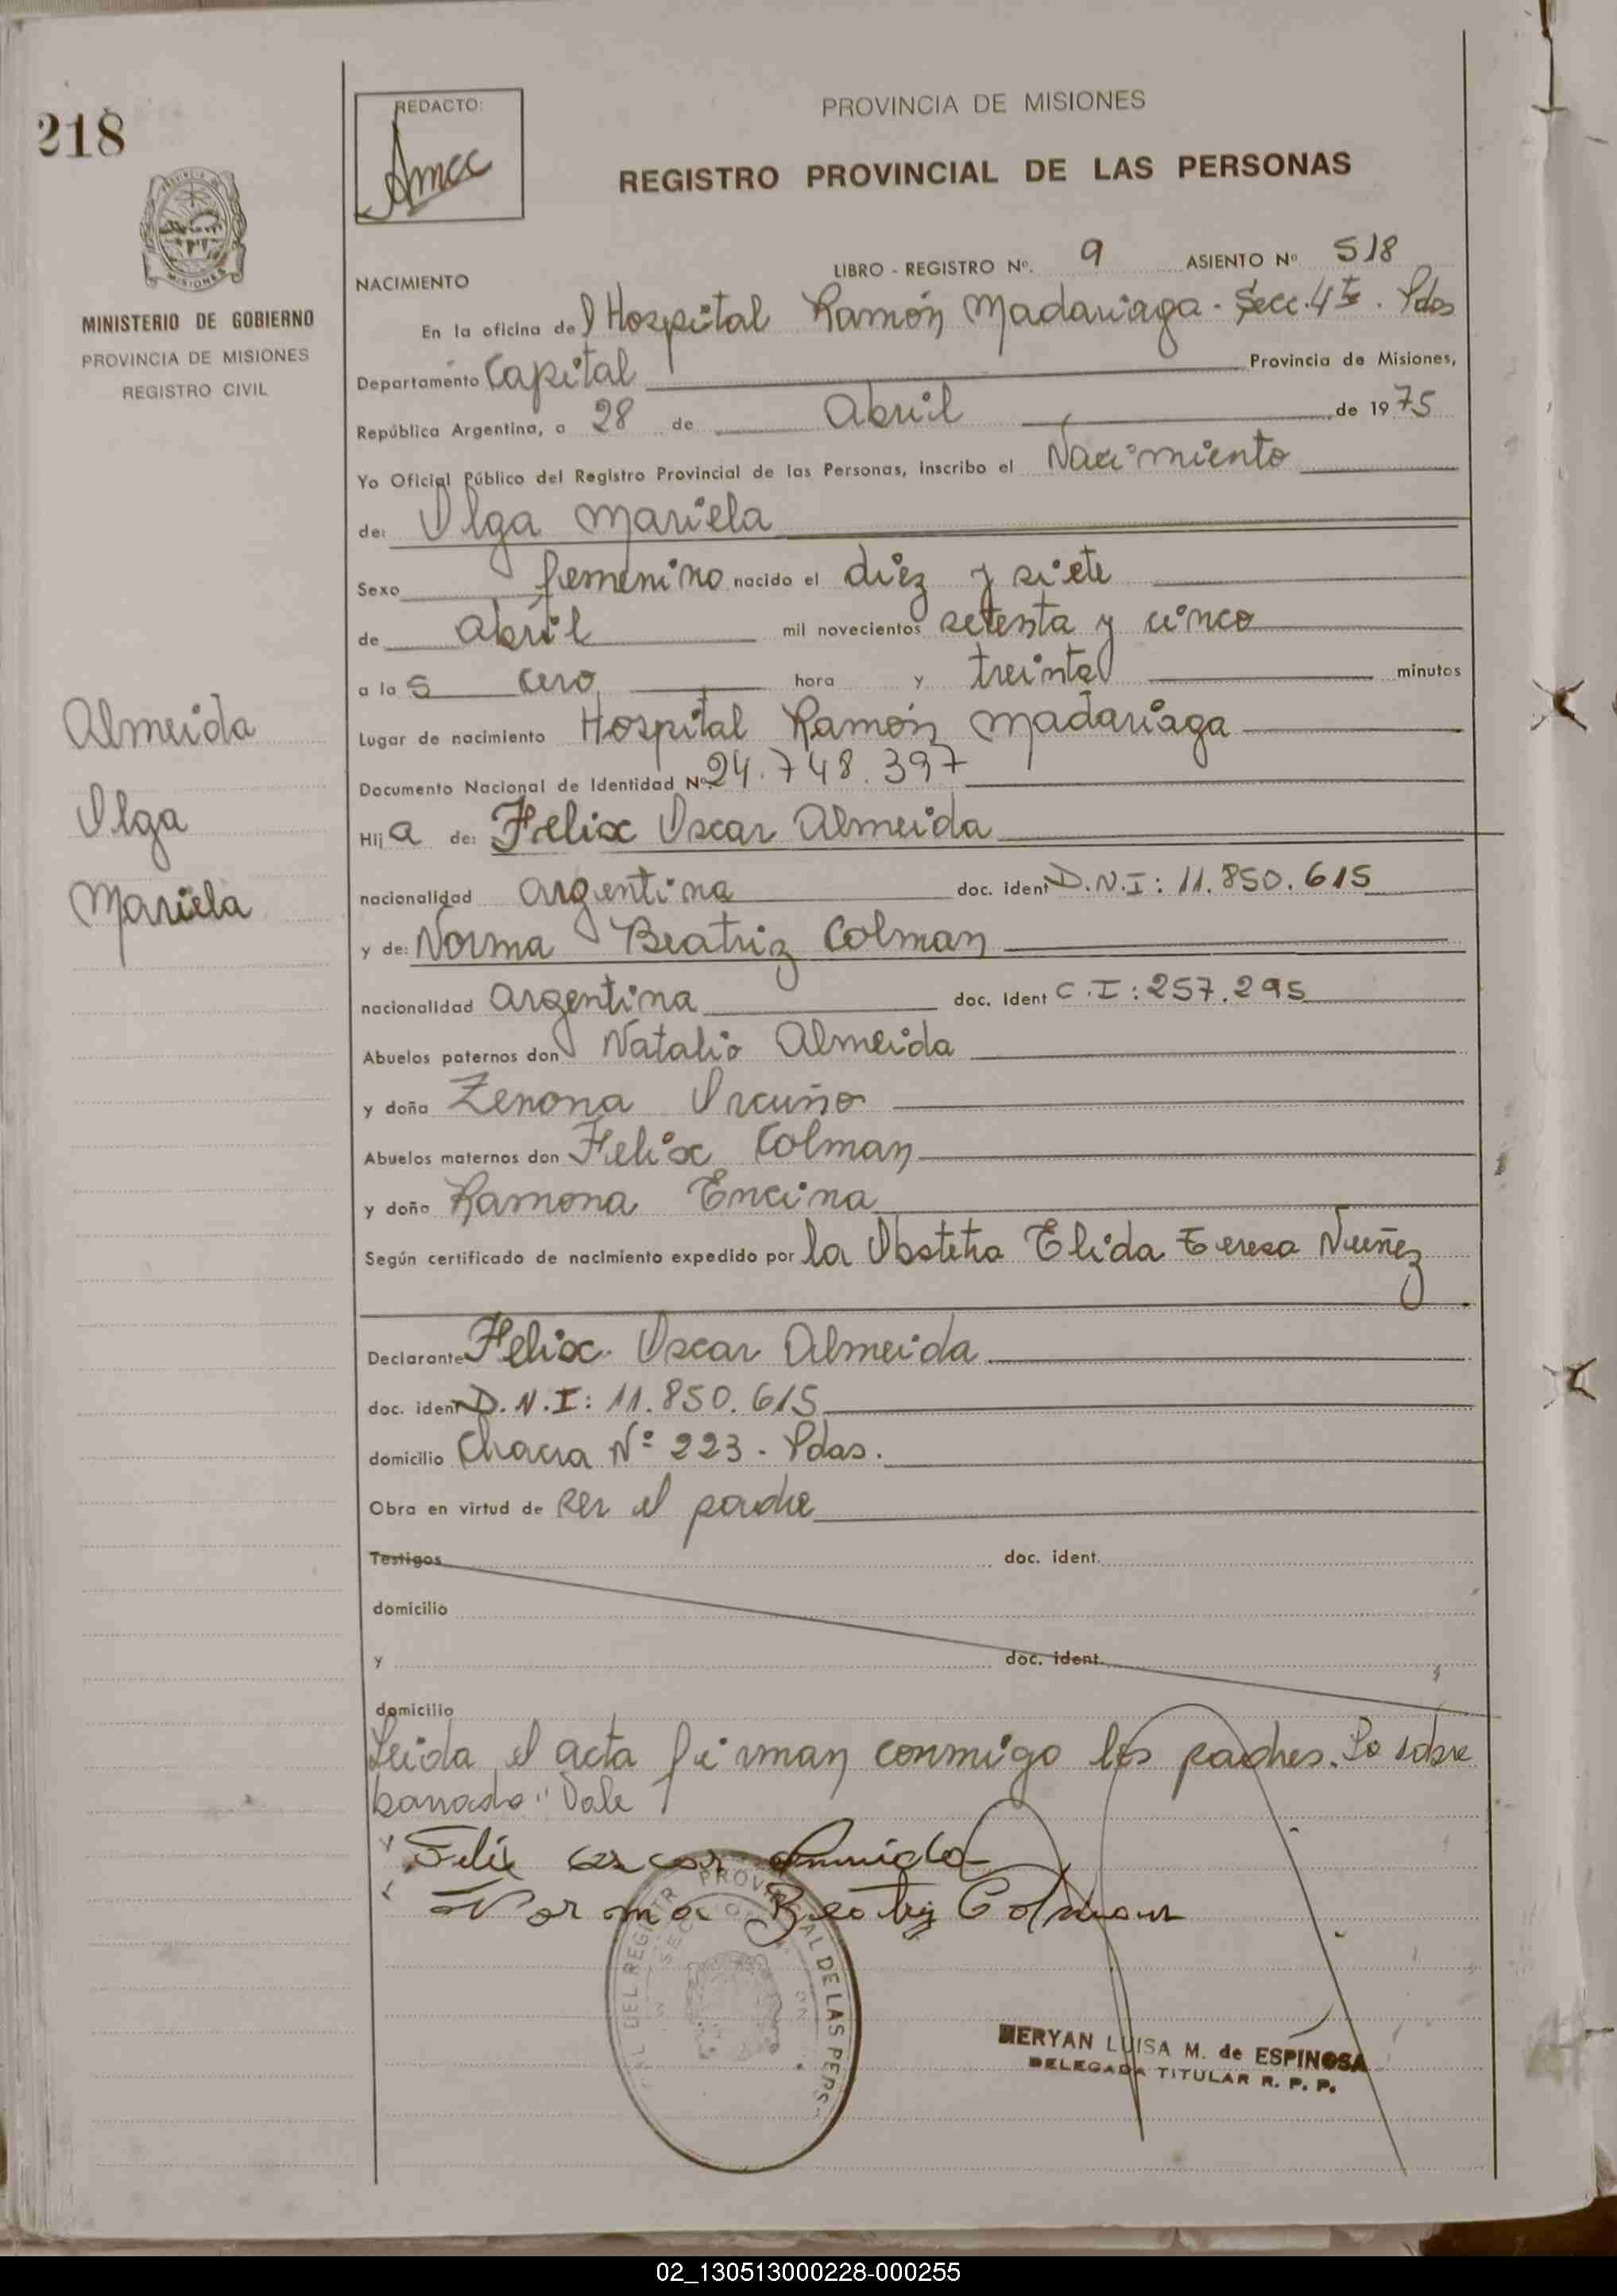 218
REDACTO:
PROVINCIA DE MISIONES
REGISTRO PROVINCIAL DE LAS PERSONAS
MISIONES
MINISTERIO DE GOBIERNO
PROVINCIA DE MISIONES
REGISTRO CIVIL
NACIMIENTO
LIBRO - REGISTRO Nº. 9 ASIENTO Nº 518
En la oficina del Hospital Ramón Madariaga - Secc. 4ta. Pdas
Departamento Capital Provincia de Misiones,
República Argentina, a 28 de Abril de 1975
Yo Oficial Público del Registro Provincial de las Personas, inscribo el Nacimiento
de: Olga Mariela
Sexo femenino nacido el diez y siete
de abril mil novecientos setenta y cinco
a las cero hora y treinta minutos
Lugar de nacimiento Hospital Ramón Madariaga
Documento Nacional de Identidad Nº 24.748.397
Hija de: Felix Oscar Almeida
nacionalidad argentina doc. ident D.N.I: 11.850.615
y de: Norma Beatriz Colman
nacionalidad argentina doc. Ident C.I: 257.295
Abuelos paternos don Natalio Almeida
y doña Zenona Orcuño
Abuelos maternos don Felix Colman
y doña Ramona Encina
Según certificado de nacimiento expedido por la Obstetra Elida Teresa Nuñez
Declarante Felix Oscar Almeida
doc. ident D.N.I: 11.850.615
domicilio Chacra Nº 223 - Pdas.
Obra en virtud de ser el padre
Testigos doc. ident.
domicilio
y doc. ident.
domicilio
Leida el acta firman conmigo los padres. So sobre
borrado: Vale
Almeida
Olga
Mariela
Felix oscar Almeida
Norma Beatriz Colman
PROVINCIAL DE LAS PERS
MERYAN LUISA M. de ESPINOSA
DELEGADA TITULAR R. P. P.
02_130513000228-000255